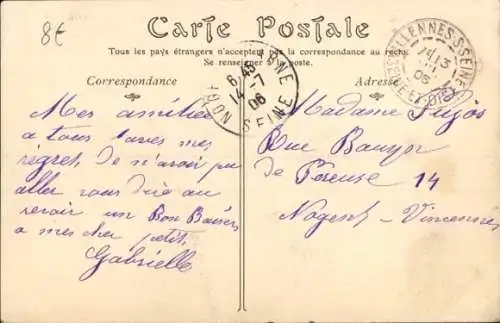 8€
Carte Postale
Tous les pays étrangers n'acceptent pas la correspondance au recto
Se renseigner à la poste.
Correspondance
Adresse
6 45
14 - 7
06
SEINE
13
06
Mes amitiés
a tous avec mes
regrets de n'avoir pu
aller vous dire au
revoir un Bon Baisers
a mes cher petit
Gabrielle
Madame Pujos
Rue Bauyer
de Pereuse 14
Nogent-Vincennes